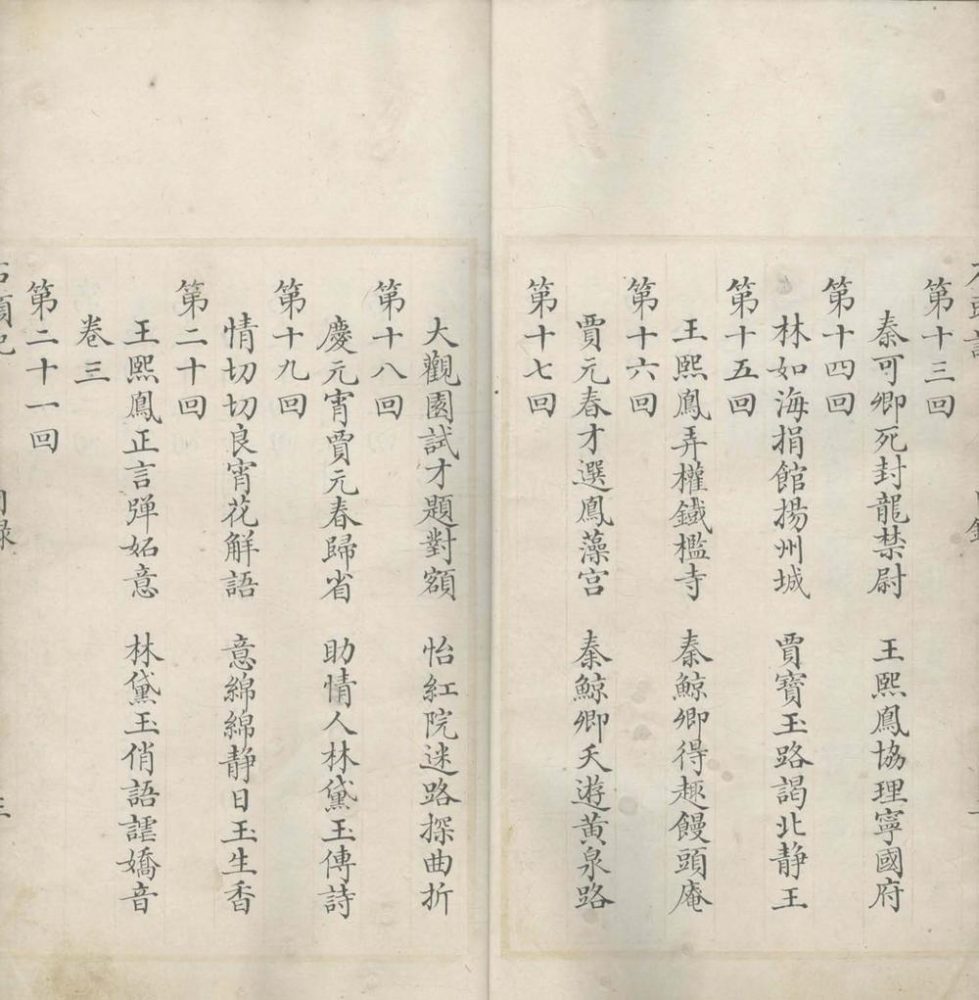 第十三回
秦可卿死封龍禁尉　王熙鳳協理寧國府
第十四回
林如海捐館揚州城　賈寶玉路謁北静王
第十五回
王熙鳳弄權鐵檻寺　秦鯨卿得趣饅頭庵
第十六回
賈元春才選鳳藻宮　秦鯨卿夭逝黄泉路
第十七回
大觀園試才題對額　怡紅院迷路探曲折
第十八回
慶元宵賈元春歸省　助情人林黛玉傳詩
第十九回
情切切良宵花解語　意綿綿静日玉生香
第二十回
王熙鳳正言彈妬意　林黛玉俏語謔嬌音
卷三
第二十一回